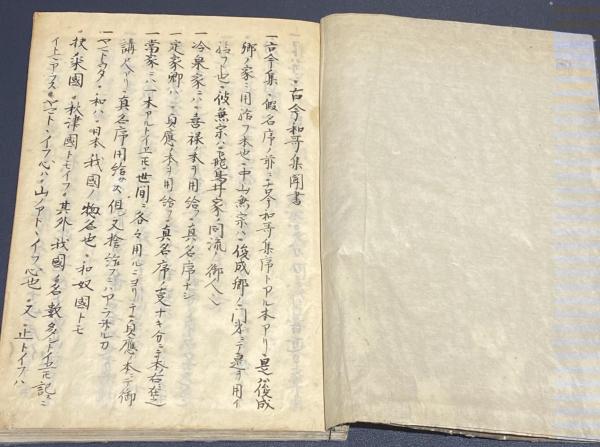 古今和哥集聞書
一古今集ノ假名序ノ前ニ古今和哥集序トアル本アリ是ハ俊成
卿ノ家ニ用給フ本也中山無宗ハ俊成卿ノ門弟ニテ是ヲ用イ
給フト也彼無宗ハ飛鳥井家ノ同流ノ御人ト
一冷泉家ニハ喜禄ノ本ヲ用給フ真名序ナシ
一定家卿ハ貞應ノ本ヲ用給フ真名序ノ
一當家ニハ一本アルト世間ニ各々用ルニヨリテ貞應ノ本ニテ御
講尺アリ真名序用給ハス但又捨給フニハアラサルカ
一ヤマトウタ和ハ日本我國ノ惣名也和奴國トモ
扶桒國秋津國トモイフ其外我國ノ名数多アルト
イフ心ハ山ノアトトイフ心也又止トイフハ